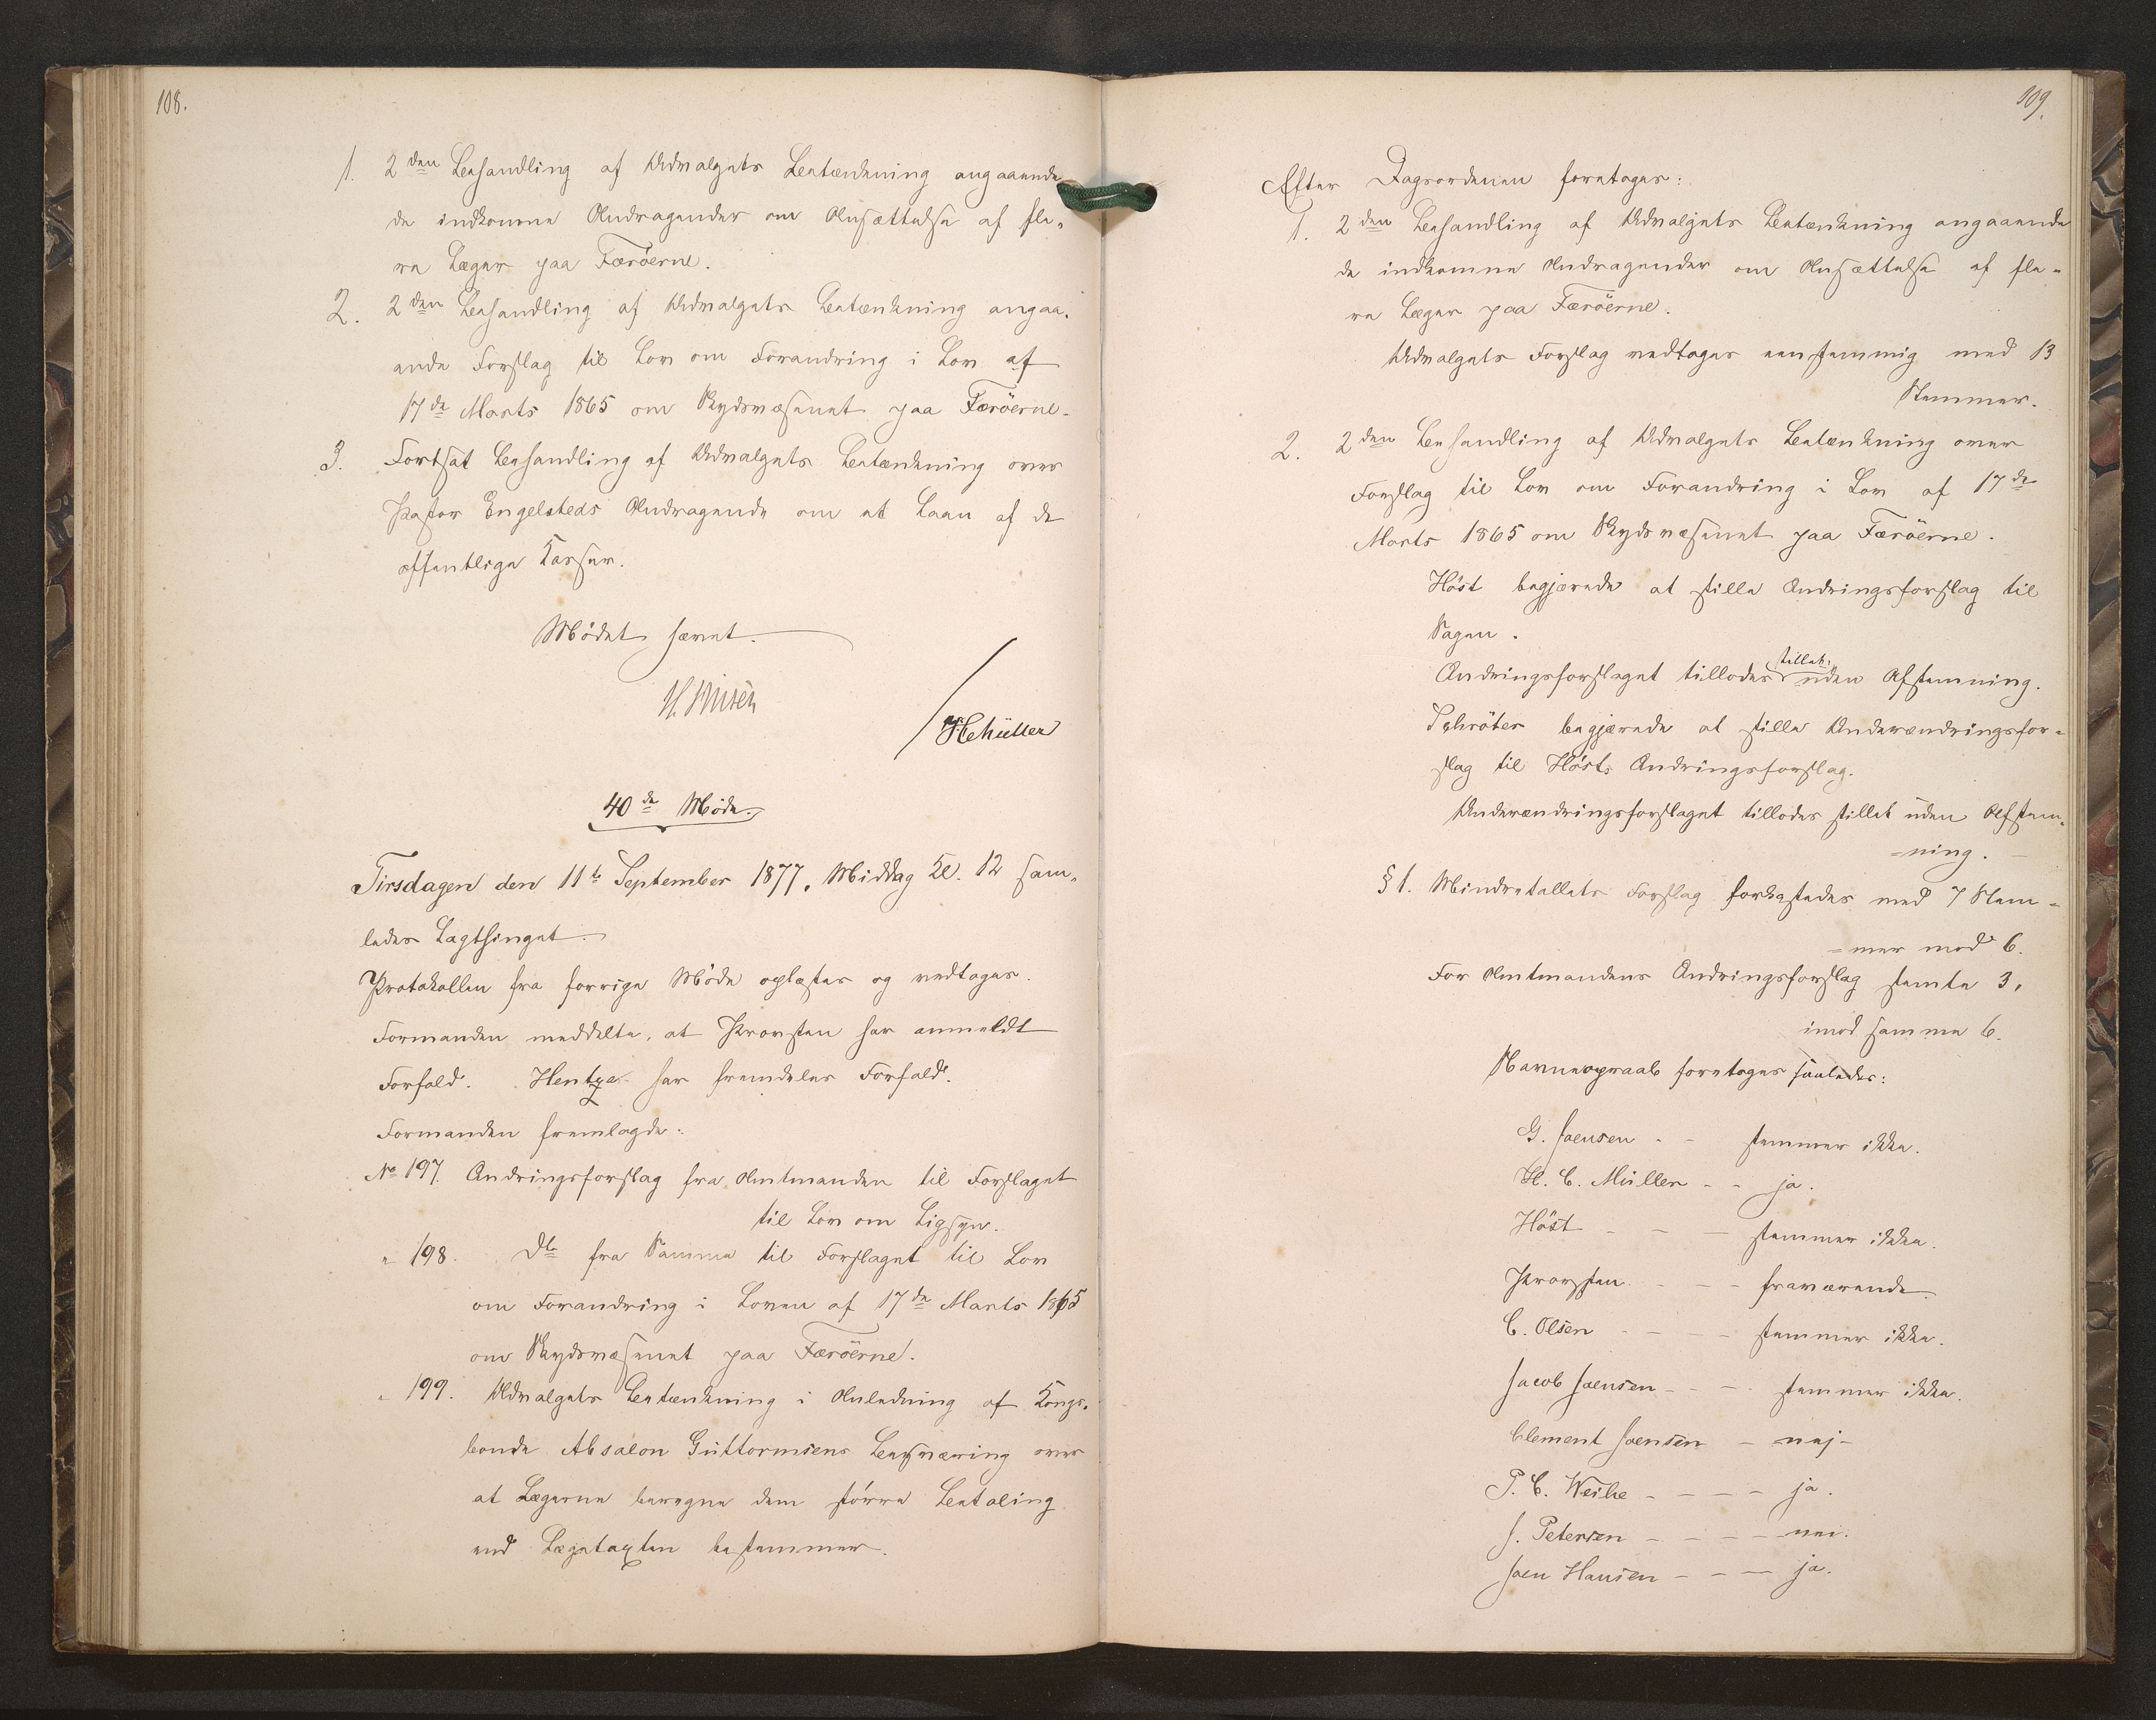 108.
1. 2den Behandling af Udvalgets Betænkning angaaende
de indkomne Andragender om Ansættelse af fle-
re Læger paa Færöerne.
2. 2den Behandling af Udvalgets Betænkning angaa-
ende Forslag til Lov om Forandring i Lov af
17de Marts 1865 om Skydsvæsenet paa Færöerne.
3. Fortsat Behandling af Udvalgets Betænkning over
Pastor Engelsteds Andragende om et Laan af de
offentlige Kasser.
Mödet hævet.
HCMüller
40de Möde.
Tirsdagen den 11te September 1877, Middag Kl. 12 sam-
ledes Lagthinget.
Protokollen fra forrige Möde oplæstes og vedtoges.
Formanden meddelte, at Provsten har anmeldt
Forfald. Hentze har fremdeles Forfald.
Formanden fremlagde:
No 197. Ændringsforslag fra Amtmanden til Forslaget
til Lov om Ligsyn.
" 198. Do fra Samme til Forslaget til Lov
om Forandring i Loven af 17de Marts 1865
om Skydsvæsenet paa Færöerne.
" 199. Udvalgets Betænkning i Anledning af Kongs-
bonde Absalon Guttormsens Besværing over
at Lægerne beregne dem större Betaling
end Lægetaxten bestemmer.
109.
Efter Dagsordenen foretoges:
1. 2den Behandling af Udvalgets Betænkning angaaende
de indkomne Andragender om Ansættelse af fle-
re Læger paa Færöerne.
Udvalgets Forslag vedtoges eenstemmig med 13
Stemmer.
2. 2den Behandling af Udvalgets Betænkning over
Forslag til Lov om Forandring i Lov af 17de
Marts 1865 om Skydsvæsenet paa Færöerne.
Höst begjærede at stille Ændringsforslag til
Sagen.
Ændringsforslaget tillodes stillet uden Afstemning.
Schröter begjærede at stille Underændringsfor-
slag til Hösts Ændringsforslag.
Underændringsforslaget tillodes stillet uden Afstem-
-ning.
§ 1. Mindretallets Forslag forkastedes med 7 Stem-
-mer mod 6.
For Amtmandens Ændringsforslag stemte 3,
imod samme 6.
Navneopraab foretoges saaledes:
G. Joensen - - stemmer ikke.
H. C. Müller - - ja.
Höst - - - stemmer ikke.
Provsten - - - fraværende.
C. Olsen - - - stemmer ikke.
Jacob Joensen - - - stemmer ikke.
Clement Joensen - nej-
P. C. Weihe - - - - ja.
J. Petersen - - - - nei.
Joen Hansen - - - ja.